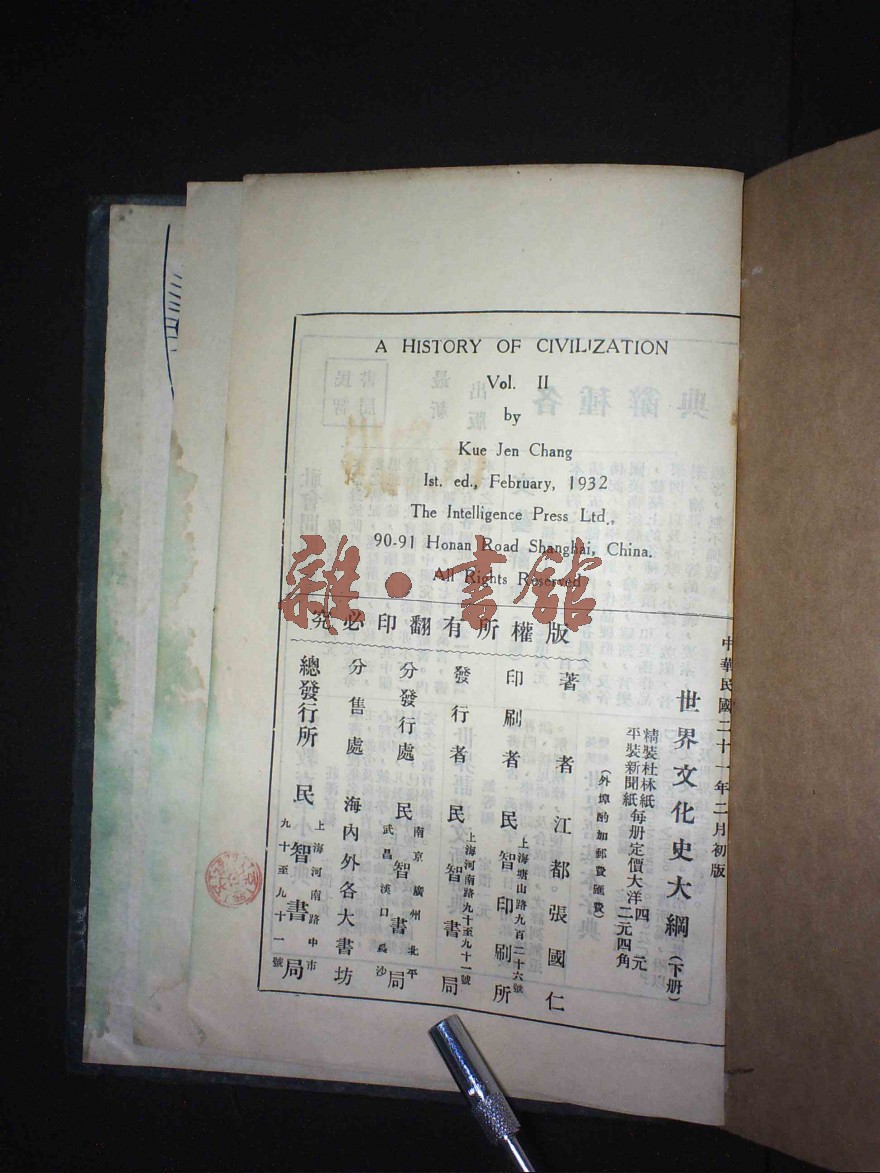 A HISTORY OF CIVILIZATION
Vol. II
by
Kue Jen Chang
Ist. ed., February, 1932
The Intelligence Press Ltd.,
90-91 Honan Road Shanghai, China.
All Rights Reserved
雜·書館
版權所有翻印必究
中華民國二十一年二月初版
世界文化史大綱(下册)
精裝杜林紙每册定價大洋四元
平裝新聞紙每册定價大洋二元四角
(外埠酌加郵費匯費)
著者 江都張國仁
印刷者 民智印刷所
上海塘山路九百二十六號
發行者 民智書局
上海河南路九十至九十一號
分發行處 民智書局
南京 廣州 北平
武昌 漢口 長沙
分售處 海內外各大書坊
總發行所 民智書局
上海河南路中市
九十至九十一號